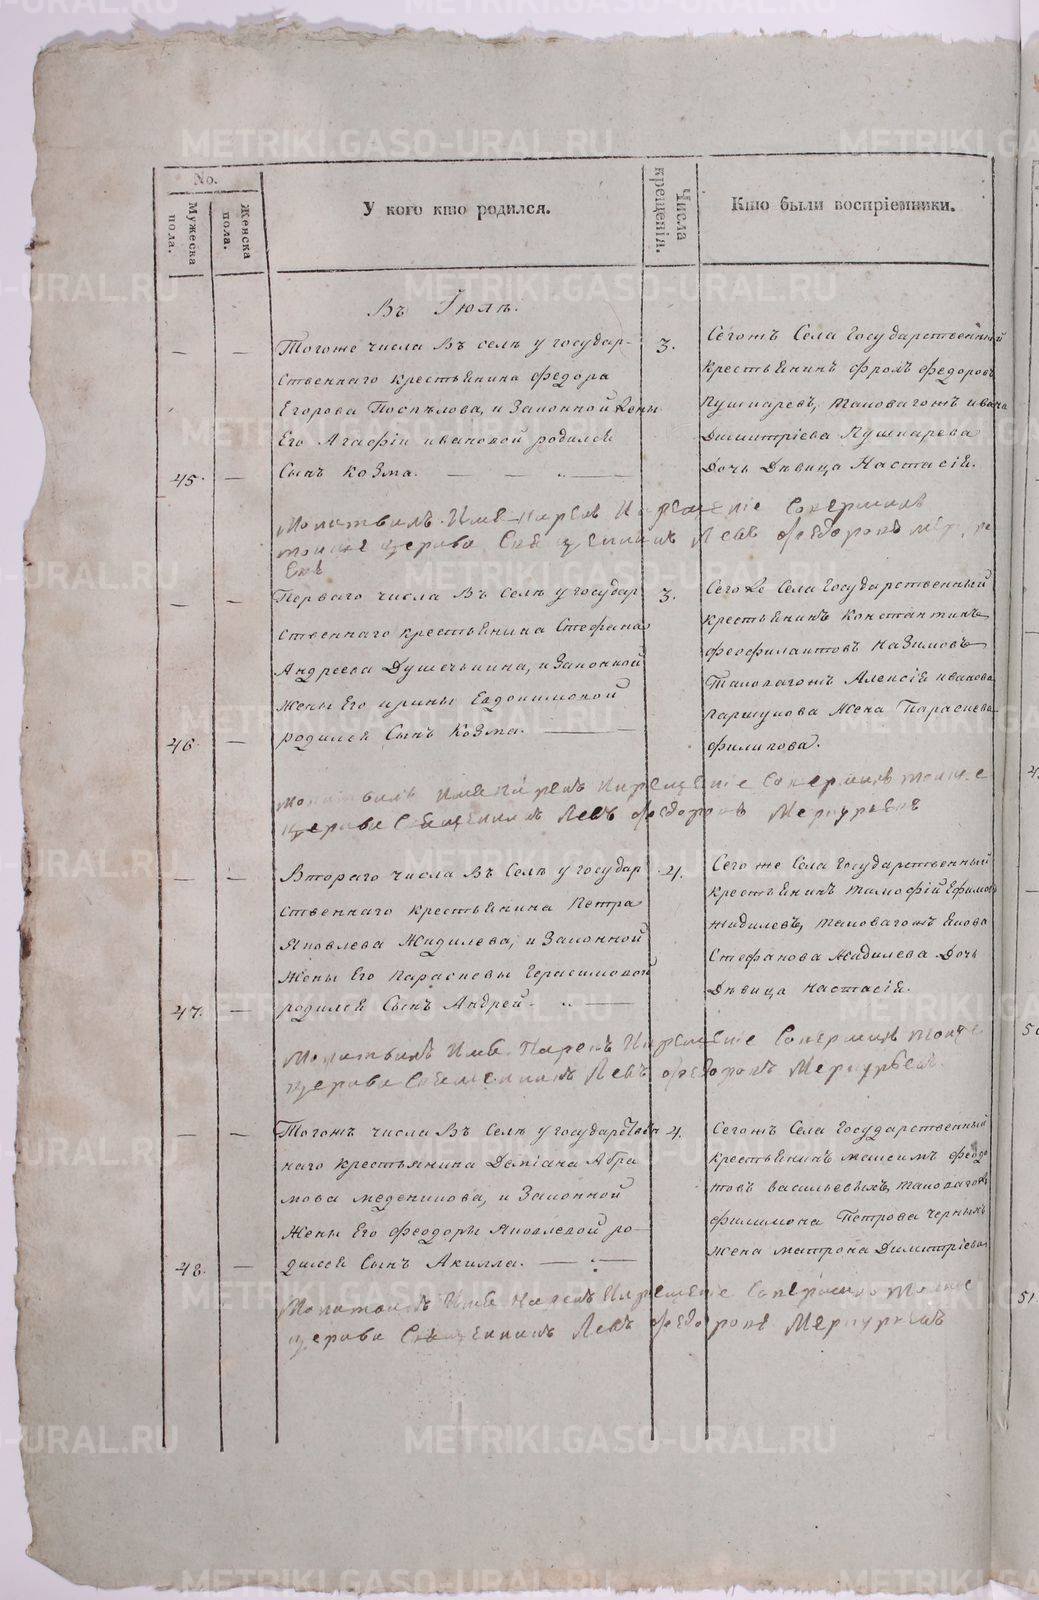 No.
Мужеска пола.
Женска пола.
У кого кто родился.
Числа крещенія.
Кто были воспріемники.
Въ Іюлѣ.
Тогоже числа Въ селѣ у государ-
ственнаго крестьянина Федора
Егорова Поспѣлова, и Законной жены
Его Агафіи ивановой родился
45. Сынъ Козма.
3.
Сегожъ Села Государственный
крестьянинъ Фролъ Федоровъ
Кушнаревъ, таковагожъ ивана
Димитріева Кушнарева
Дочь Дѣвица Настасія.
Молитвилъ Имя нарекъ И крещеніе Совершилъ
тоиже церкви Священникъ Левъ Федоровъ
Перваго числа Въ Селѣ у государ
ственнаго крестьянина Стефана
Андреева Душечкина, и Законной
жены Его ирины Евдокимовой
46. родился Сынъ Козма.
3.
Сего же Села Государственный
крестьянинъ Константинъ
Феофилактовъ Назимовъ
Таковагожъ Алексія иванова
Паршукова Жена Параскева
филипова.
Молитвилъ Имя Нарекъ И крещеніе Совершилъ тоиже
церкви Священникъ Левъ Федоровъ Меркурьевъ
Втораго числа Въ Селѣ у государ
ственнаго крестьянина Петра
Яковлева Жидилева, и Законной
Жены Его Параскевы Герасимовой
47. родился Сынъ Андрей.
4.
Сего же Села Государственный
крестьянинъ тимофій Ефимовъ
жидилевъ, таковагожъ Якова
Стефанова Жидилева Дочь
Дѣвица настасія.
Молитвилъ Имя Нарекъ И крещеніе Совершилъ тоиже
церкви Священникъ Левъ Федоровъ Меркурьевъ.
Тогожъ числа Въ Селѣ у государствен
наго крестьянина Даміана Абра
мова меденикова, и Законной
Жены Его Феодоры Яковлевой ро-
48. дился Сынъ Акилла.
4.
Сегожъ Села Государственный
крестьянинъ максимъ Федо
товъ васильевыхъ, таковагожъ
Филимона Петрова Черныхъ
жена матрона Димитріева
Молитвилъ Имя Нарекъ И крещеніе Совершилъ тоиже
церкви Священникъ Левъ Федоровъ Меркурьевъ
51
METRIKI.GASO-URAL.RU